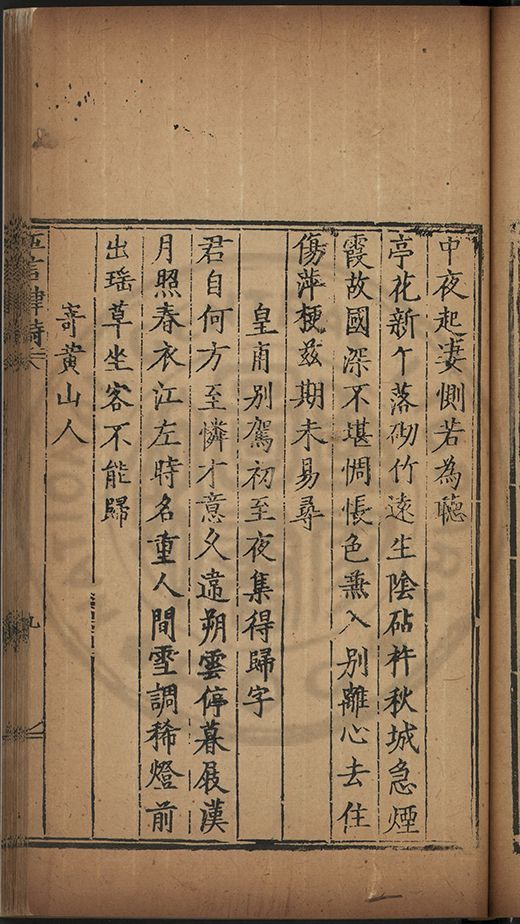 中夜起凄惻若為聽
亭花新乍落砌竹遠生陰砧杵秋城急煙
霞故國深不堪惆悵色兼入別離心去住
傷萍梗茲期未易尋
皇甫別駕初至夜集得歸字
君自何方至憐才意久違朔雲停暮屐漢
月照春衣江左時名重人間雪調稀燈前
出瑶草坐客不能歸
寄黃山人
五言律詩
九